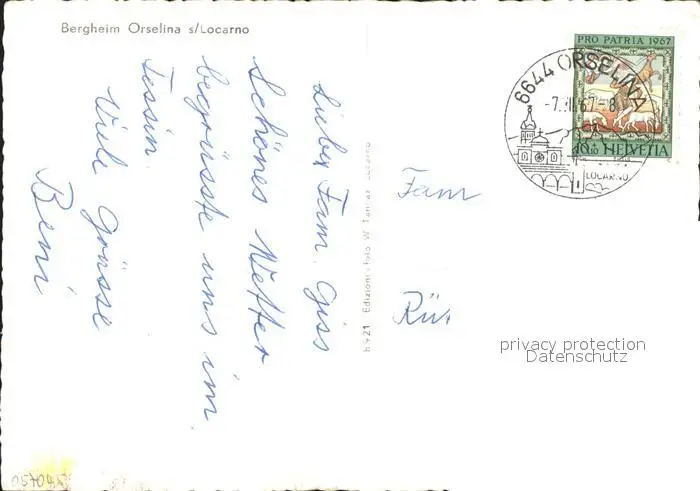 Bergheim Orselina s/Locarno
Liebe Fam. Giss
Schönes Wetter
begrüsste uns im
Tessin.
Viele Grüsse
Beni
h 921 Edizioni Foto W.
Fam
Rüt
PRO PATRIA 1967
10+10 HELVETIA
6644 ORSELINA
LOCARNO
privacy protection
Datenschutz